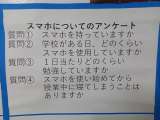 スマホについてのアンケート
質問① スマホを持っていますか
質問② 学校がある日、どのくらい
スマホを使用していますか
質問③ 1日当たりどのくらい
勉強していますか
質問④ スマホを使い始めてから
授業中に寝てしまうことは
ありますか